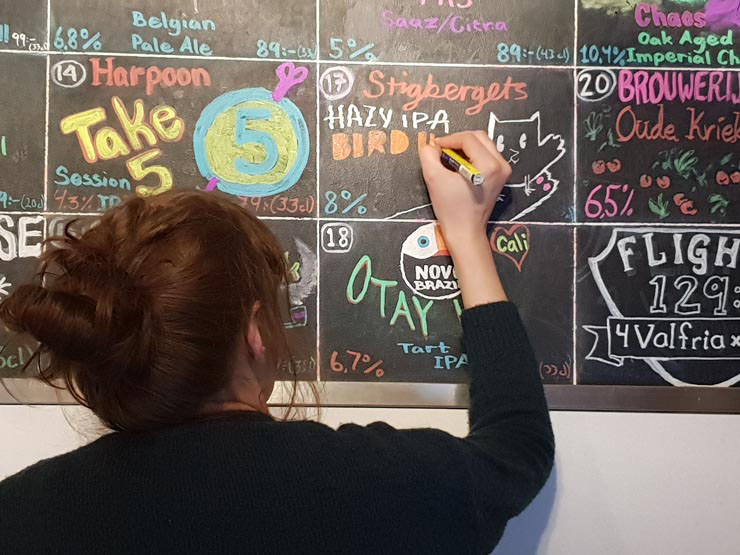 99:-
(33cl)
6,8%
Belgian
Pale Ale
89:-(33
5%
Saaz/Citra
89:-(43cl)
10,4%
Chaos
Oak Aged
Imperial Ch
14 Harpoon
Take
5
5
Session
4.3%
79:(33cl)
17 Stigbergets
HAZY IPA
BIRD
8%
20 BROUWERIJ
Oude Kriek
6,5%
SE
18
NOV
BRAZI
Cali
OTAY
Tart
IPA
6,7%
(33cl)
FLIGH
129:
4 Valfria x